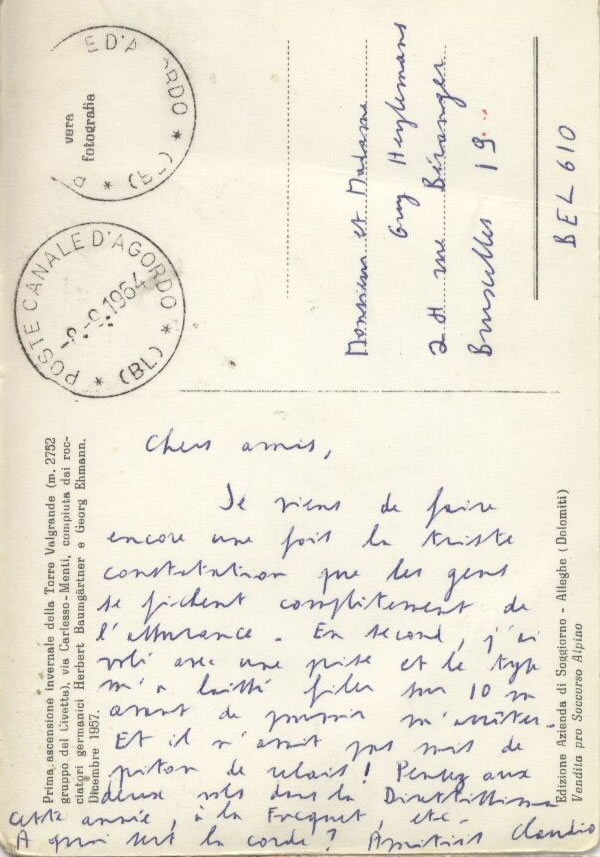 E D'A   ORDO * (B
vera
fotografia
POSTE CANALE D'AGORDO * (BL) *
-9.-9.1964
Monsieur et Madame
Guy Heylemans
rue Béranger
Bruxelles 19
BEL 610
Prima ascensione invernale della Torre Valgrande (m. 2752
gruppo del Civetta), via Carlesso-Menti, compiuta dai roc-
ciatori germanici Herbert Baumgärtner e Georg Ehmann.
Dicembre 1957.
Chers amis,
Je viens de faire
encore une fois la triste
constatation que les gens
se fichent complètement de
l'assurance. En second, j'ai
volé avec une prise et le type
m'a laissé filer sur 10 m
avant de pouvoir m'arrêter.
Et il n'avait pas mis de
piton de relais! Pensez aux
deux vols dans la Direttissima
cette année, à la Frequet, etc-
A quoi sert la corde? Amitiés Claudio
Edizione Azienda di Soggiorno - Alleghe (Dolomiti)
Vendita pro Soccorso Alpino